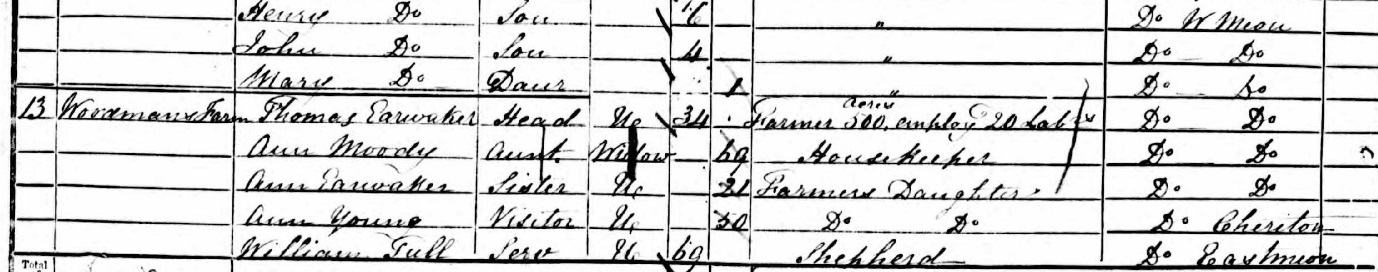 Henry Do Son 6 " Do W Meon
John Do Son 4 " Do Do
Mary Do Daur 1 " Do Do
13 Woodmans Farm Thomas Earwaker Head U 34 Farmer 500 acres employ 20 Labrs Do Do
Ann Moody Aunt Widow 69 Housekeeper Do Do
Ann Earwaker Sister U 21 Farmers Daughter Do Do
Ann Young Visitor U 50 Do Do Do Cheriton
William Full Serv U 69 Shepherd Do East meon
Total